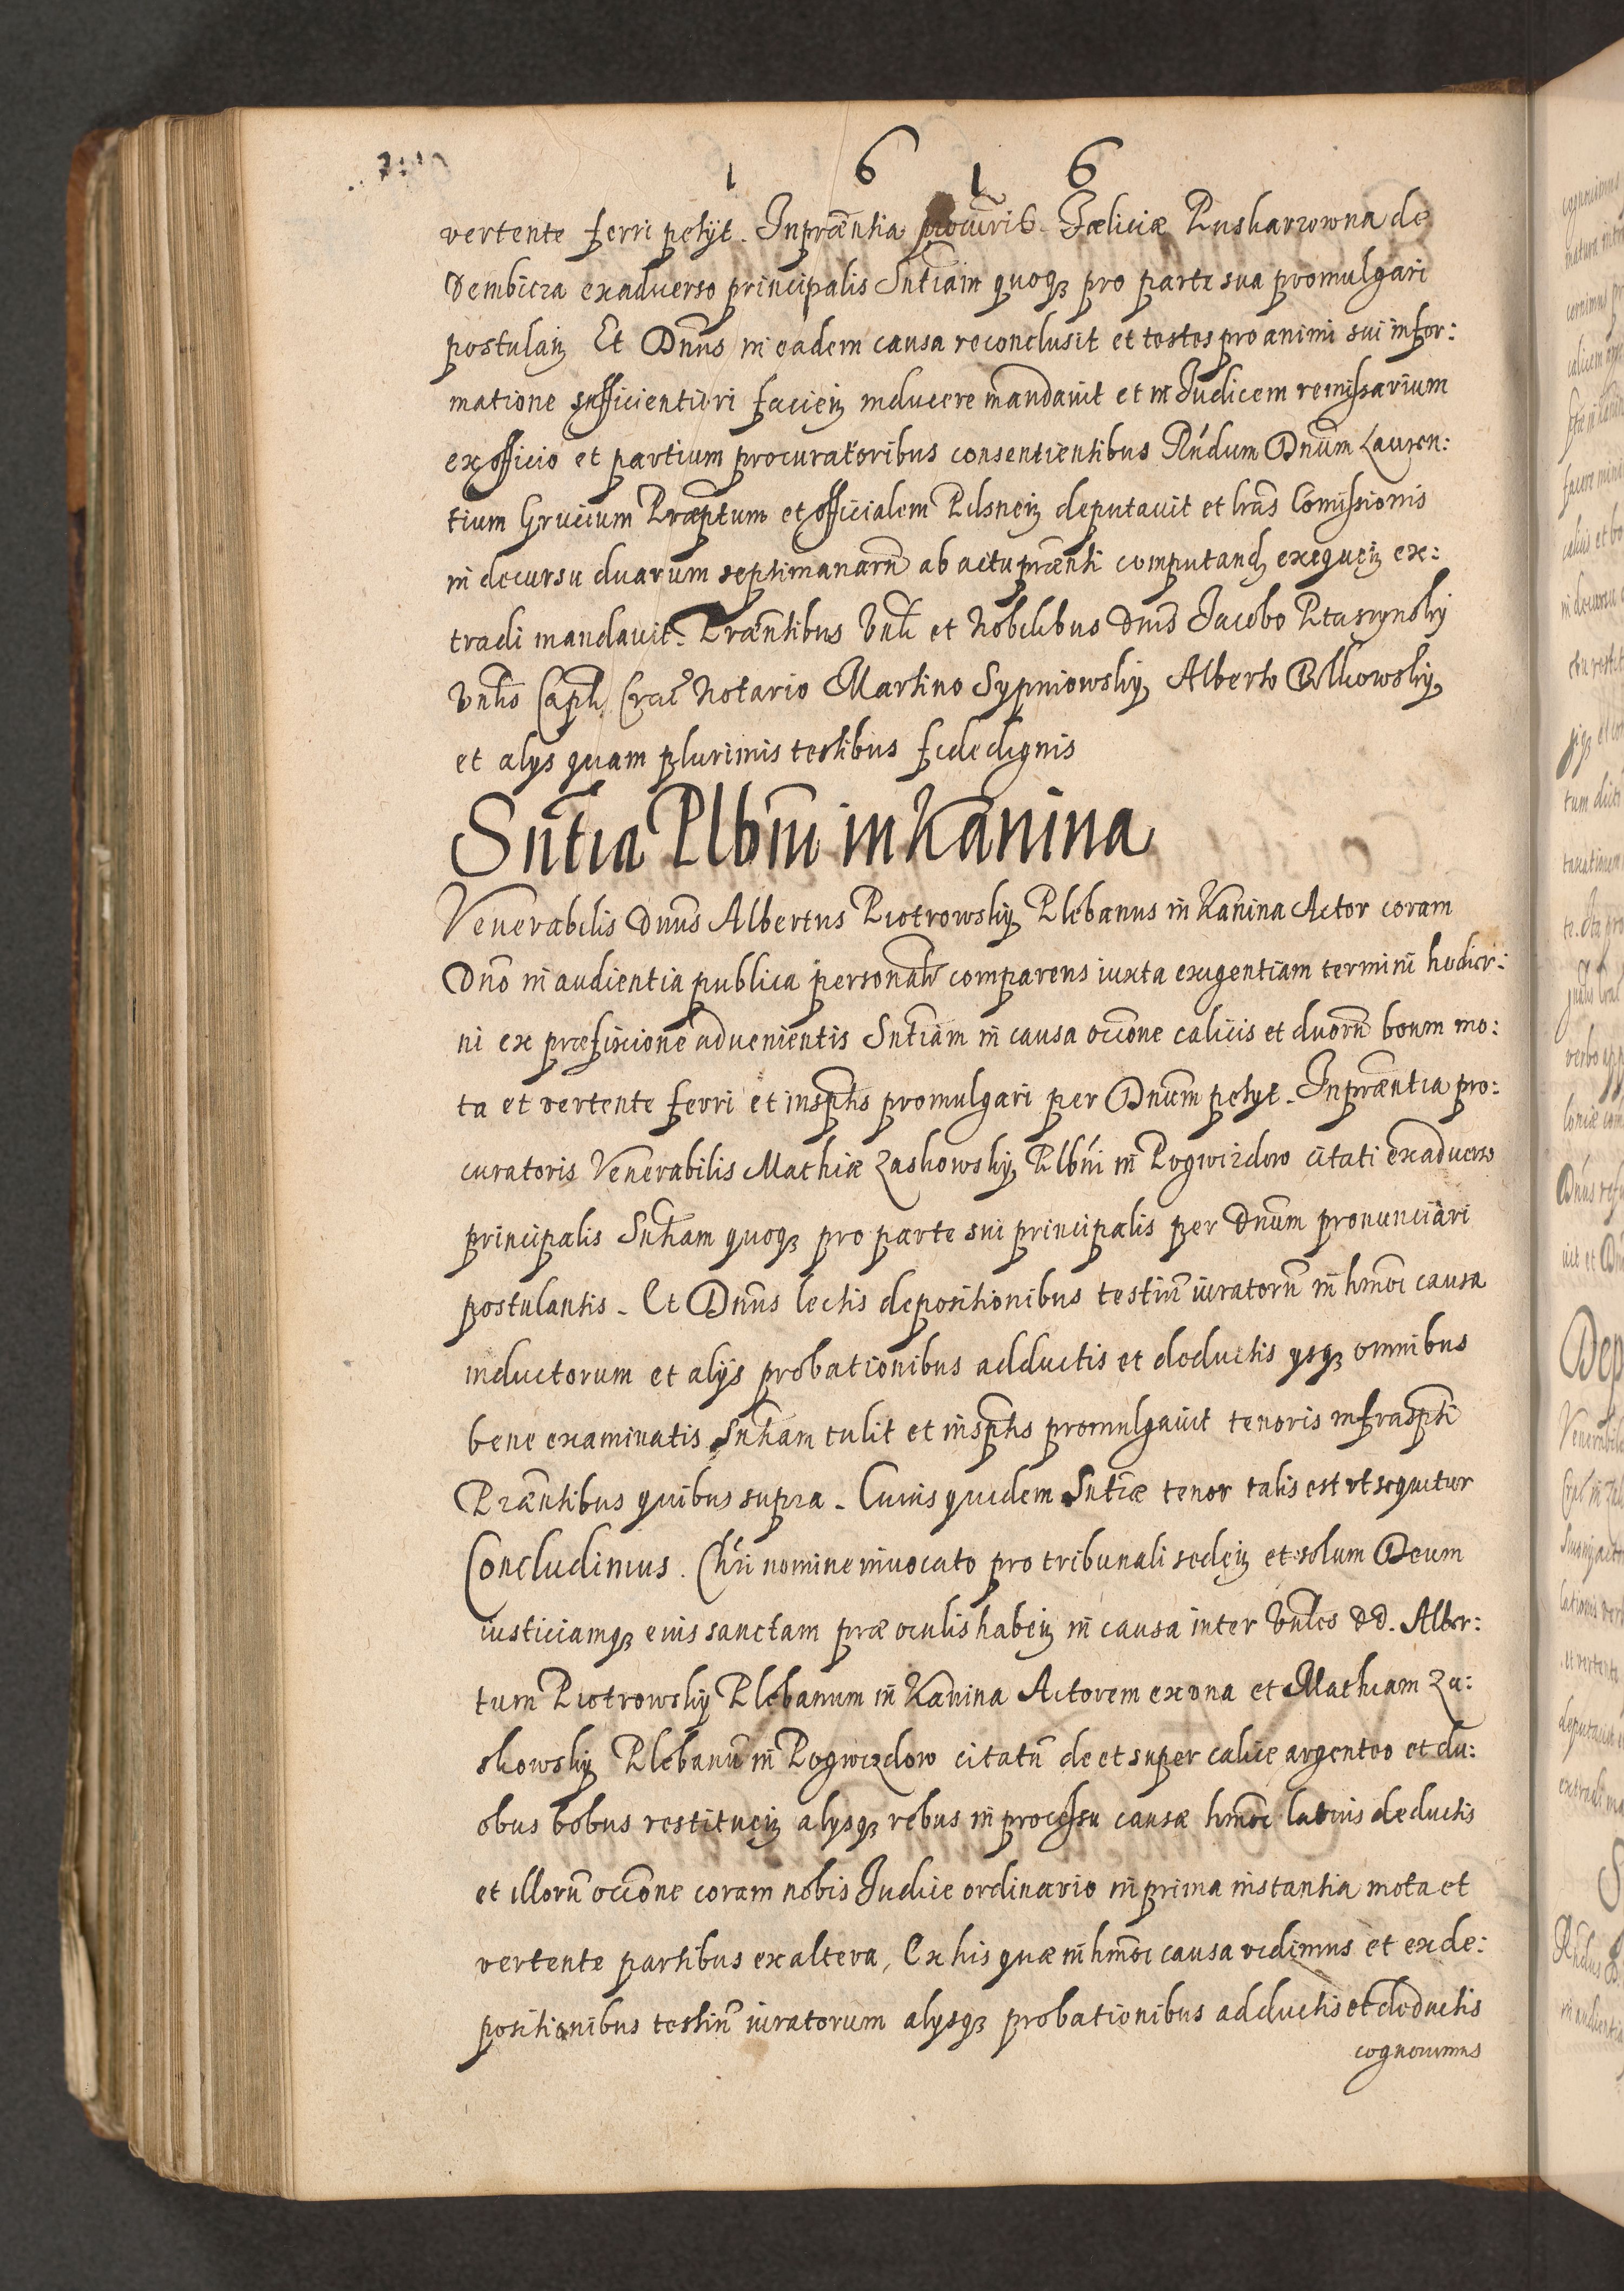 1616
vertente ferri petijt. In pręntia procuris. Fœliciæ Puskarzowna de
Dembicza ex adverso principalis Sntiam quoqꝫ pro parte sua promulgari
postulan Et Dnus in eadem causa reconclusit et testes pro animi sui infor:
matione sufficientiori facien inducere mandavit et in Judicem remissarium
ex officio et partium procuratoribus consentientibus Rndum Dnum Lauren:
tium Grucium Præptum et officialem Pilsnen deputavit et lras Comissionis
in decursu duarum septimanarū ab actu præntis computand exequen ex:
tradi mandavit. Præntibus Vnli et Nobilibus Dnis Jacobo Ptaszynsky
Vnlis Capli Crac Notario Martino Sypniowsky Alberto
et alys quam plurimis testibus fide dignis
Sntia Plbni in Kanina
Venerabilis Dnus Albertus Piotrowsky Plebanus in Kanina Actor coram
Dno in audientia publica personalr comparens iuxta exigentiam termini hodier:
ni ex præfixione advenientis Sntiam in causa occone calicis et duorū boum mo:
ta et vertente ferri et inscptis promulgari per Dnum petyt. In præntia pro:
curatoris Venerabilis Mathiæ Zaskowsky Plbni in Pogwizdow citati ex adverso
principalis Sntiam quoqꝫ pro parte sui principalis per Dnum pronunciari
postulantis. Et Dnus lectis depositionibus testiū iuratorū in hmoi causa
inductorum et alijs probationibus adductis et deductis ysqꝫ omnibus
bene examinatis Sntiam tulit et inscptis promulgavit tenoris infrascpti
Præntibus quibus supra. Cuius quidem Sntiæ tenor talis est ut sequitur
Concludimus. Chri nomine invocato pro tribunali seden et solum Deum
iusticiamqꝫ eius sanctam præ oculis haben in causa inter Vnles DD. Alber:
tum Piotrowsky Plebanum in Kanina Actorem ex una et Mathiam Za:
skowsky Plebanū in Pogwizdow citatū de et super calice argenteo et du:
obus bobus restituen alysqꝫ rebus in processu causæ hmoi latius deductis
et illorū occone coram nobis Judice ordinario in prima instantia mota et
vertente partibus ex altera, Ex his quæ in hmoi causa vidimus et ex de:
positionibus testiū iuratorum alysqꝫ probationibus adductis et deductis
cognovimus